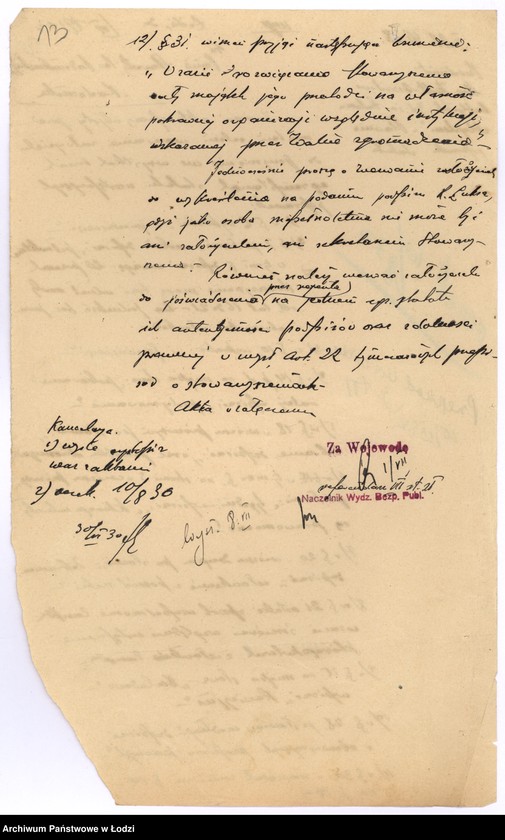 13
12/ § 31. winien przyjąć następujące brzmienie:
"W razie rozwiązania Stowarzyszenia
cały majątek jego przechodzi na własność
pokrewnej organizacji względnie instytucji,
wskazanej przez Walne Zgromadzenie".
Jednocześnie proszę o wezwanie założycieli
do wykreślenia na podaniu podpisu
gdyż jako osoba niepełnoletnia nie może być
ani założycielem, ani sekretarzem Stowarzy-
szenia. Również należy wezwać założycieli
przez rejenta
do poświadczenia na jednem egz. statutu
ich autentyczności podpisów oraz zdolności
prawnej w myśl Art. 22 tymczasowych przepi-
sów o stowarzyszeniach.
Akta załączam
Kancelarja.
1) wysłać
wraz z aktami
2) 10/8 30
Za Wojewodę
1/VII
Naczelnik Wydz. Bezp. Publ.
30/VI 30
wysł. 8.VII
Archiwum Państwowe w Łodzi